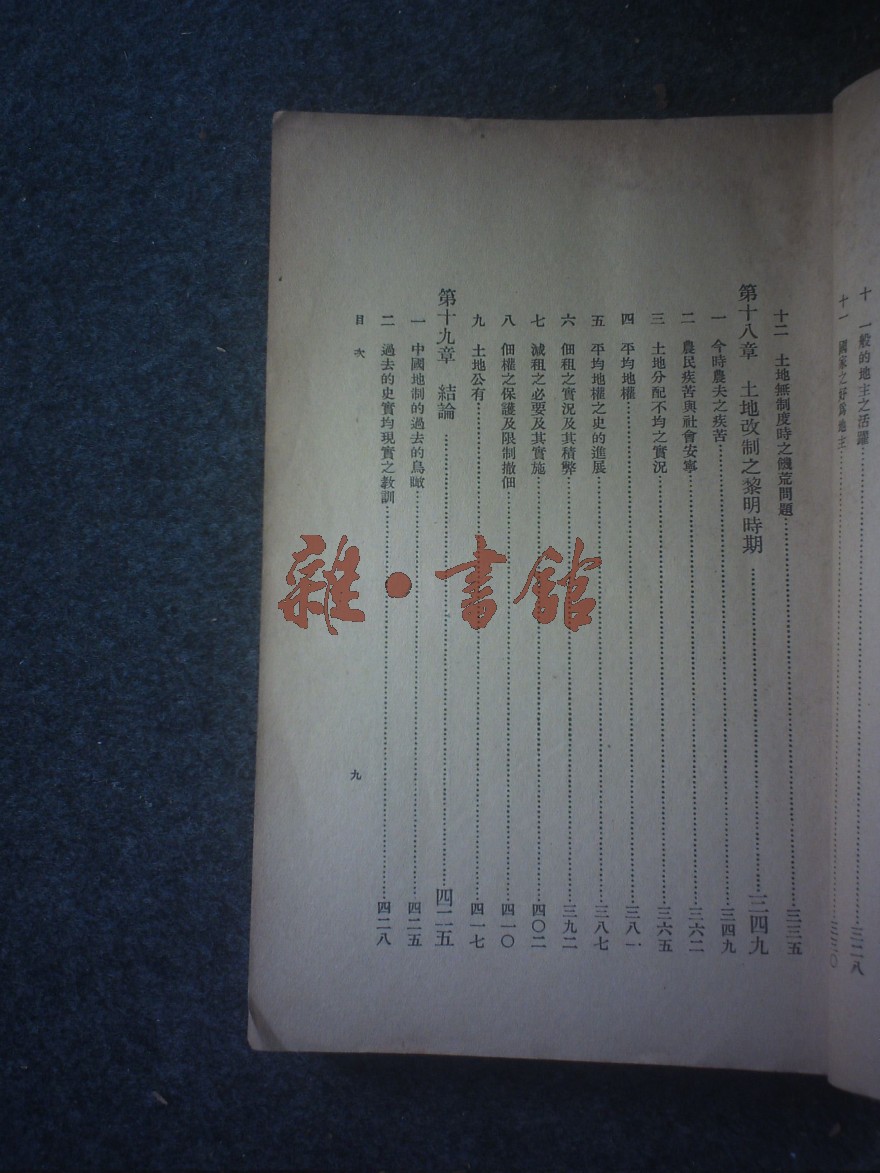 十 一般的地主之活躍……三二八
十一 國家之好爲地主……三三〇
十二 土地無制度時之饑荒問題……三三五
第十八章 土地改制之黎明時期……三四九
一 今時農夫之疾苦……三四九
二 農民疾苦與社會安寧……三六二
三 土地分配不均之實況……三六五
四 平均地權……三八一
五 平均地權之史的進展……三八七
六 佃租之實況及其積弊……三九二
七 減租之必要及其實施……四〇二
八 佃權之保護及限制撤佃……四一〇
九 土地公有……四一七
第十九章 結論……四二五
一 中國地制的過去的鳥瞰……四二五
二 過去的史實均現實之教訓……四二八
目次
九
雜·書館